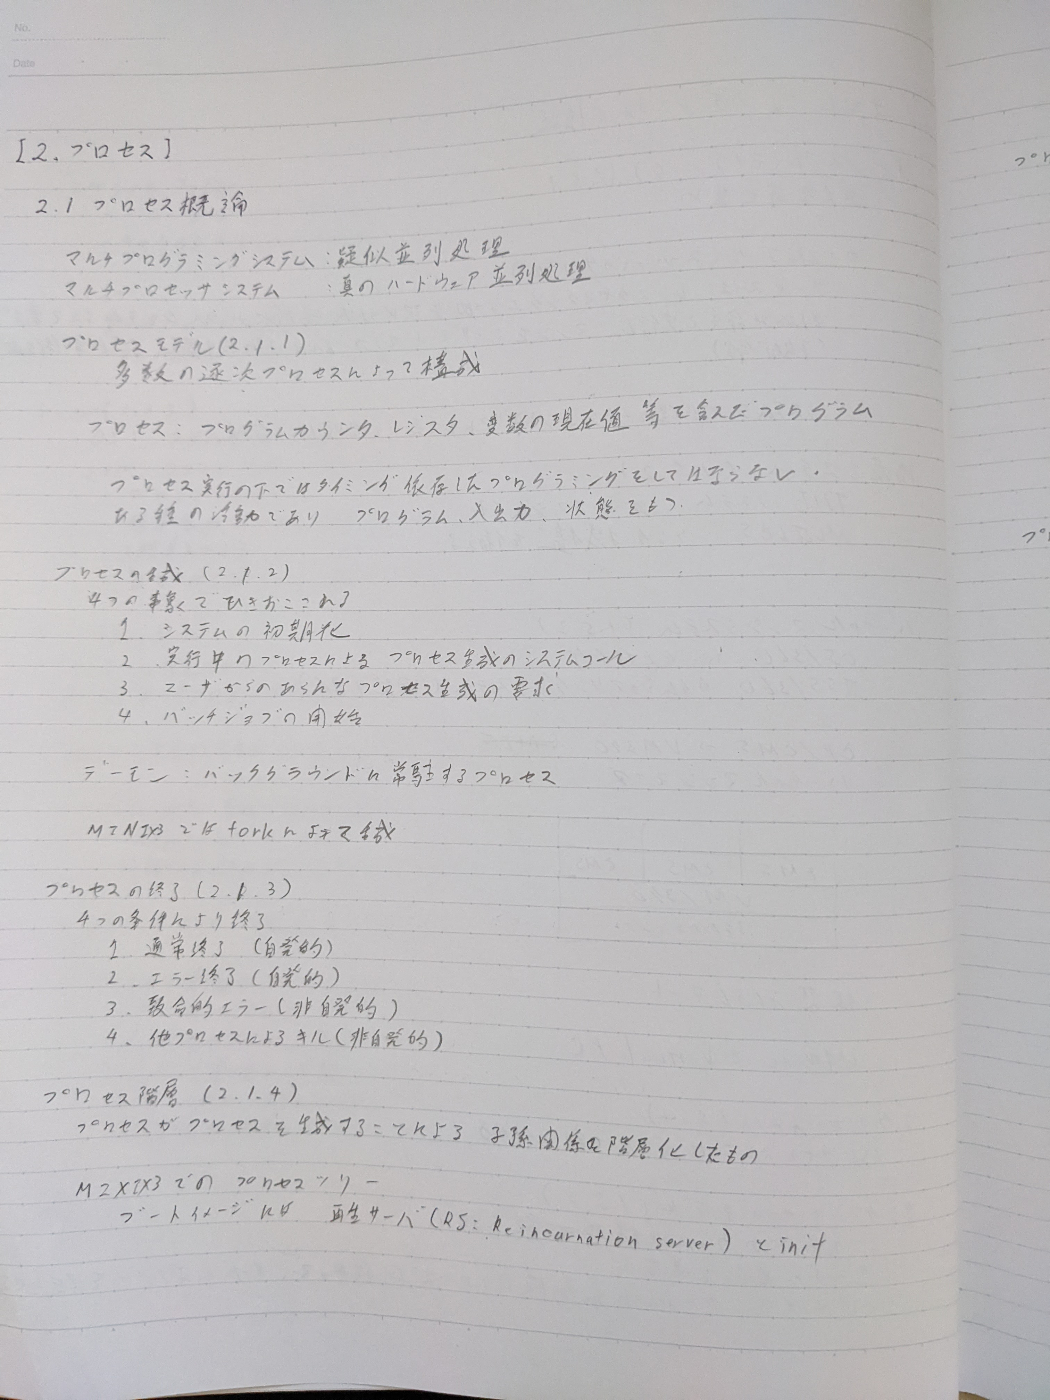 No.
Date
[2. プロセス]
2.1 プロセス概論
マルチプログラミングシステム : 疑似並列処理
マルチプロセッサシステム : 真のハードウェア並列処理
プロセスモデル(2.1.1)
多数の逐次プロセスによって構成
プロセス : プログラムカウンタ、レジスタ、変数の現在値 等を含んだプログラム
プロセス実行の下ではタイミング依存したプログラミングをしてはならない.
ある種の活動であり プログラム、入出力、状態をもつ.
プロセスの生成 (2.1.2)
4つの事象でひきおこされる
1. システムの初期化
2. 実行中のプロセスによる プロセス生成のシステムコール
3. ユーザからのあらたなプロセス生成の要求
4. バッチジョブの開始
デーモン : バックグラウンドに常駐するプロセス
MINIX3 では fork によって生成
プロセスの終了 (2.1.3)
4つの条件により終了
1. 通常終了 (自発的)
2. エラー終了 (自発的)
3. 致命的エラー (非自発的)
4. 他プロセスによるキル (非自発的)
プロセス階層 (2.1.4)
プロセスがプロセスを生成することによる 子孫関係を階層化したもの
MINIX3 での プロセスツリー
ブートイメージには 再生サーバ (RS: Reincarnation server) と init
プロ
プロ